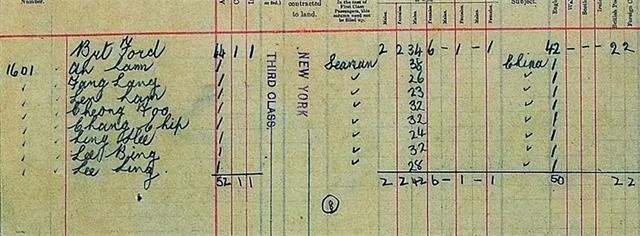 Number. contracted to land. In the case of First Class Passengers, this column need not be filled up. Males. Females. Males. Females. Males. Females. Subject.
But Ford 44 1 1 2 2 34 6 - 1 - 1 42 - - - 22
1601 Ah Lam 1 Seaman 38 China 1
" Fang Lang 1 " 26 " 1
" Len Lam 1 " 23 " 1
" Cheong Foo 1 " 32 " 1
" Chang Chip 1 " 32 " 1
" Ling Hee 1 " 24 " 1
" Lee Bing 1 " 32 " 1
" Lee Ling 1 " 28 " 1
52 1 1 2 2 42 6 - 1 - 1 50 22
THIRD CLASS.
NEW YORK
8